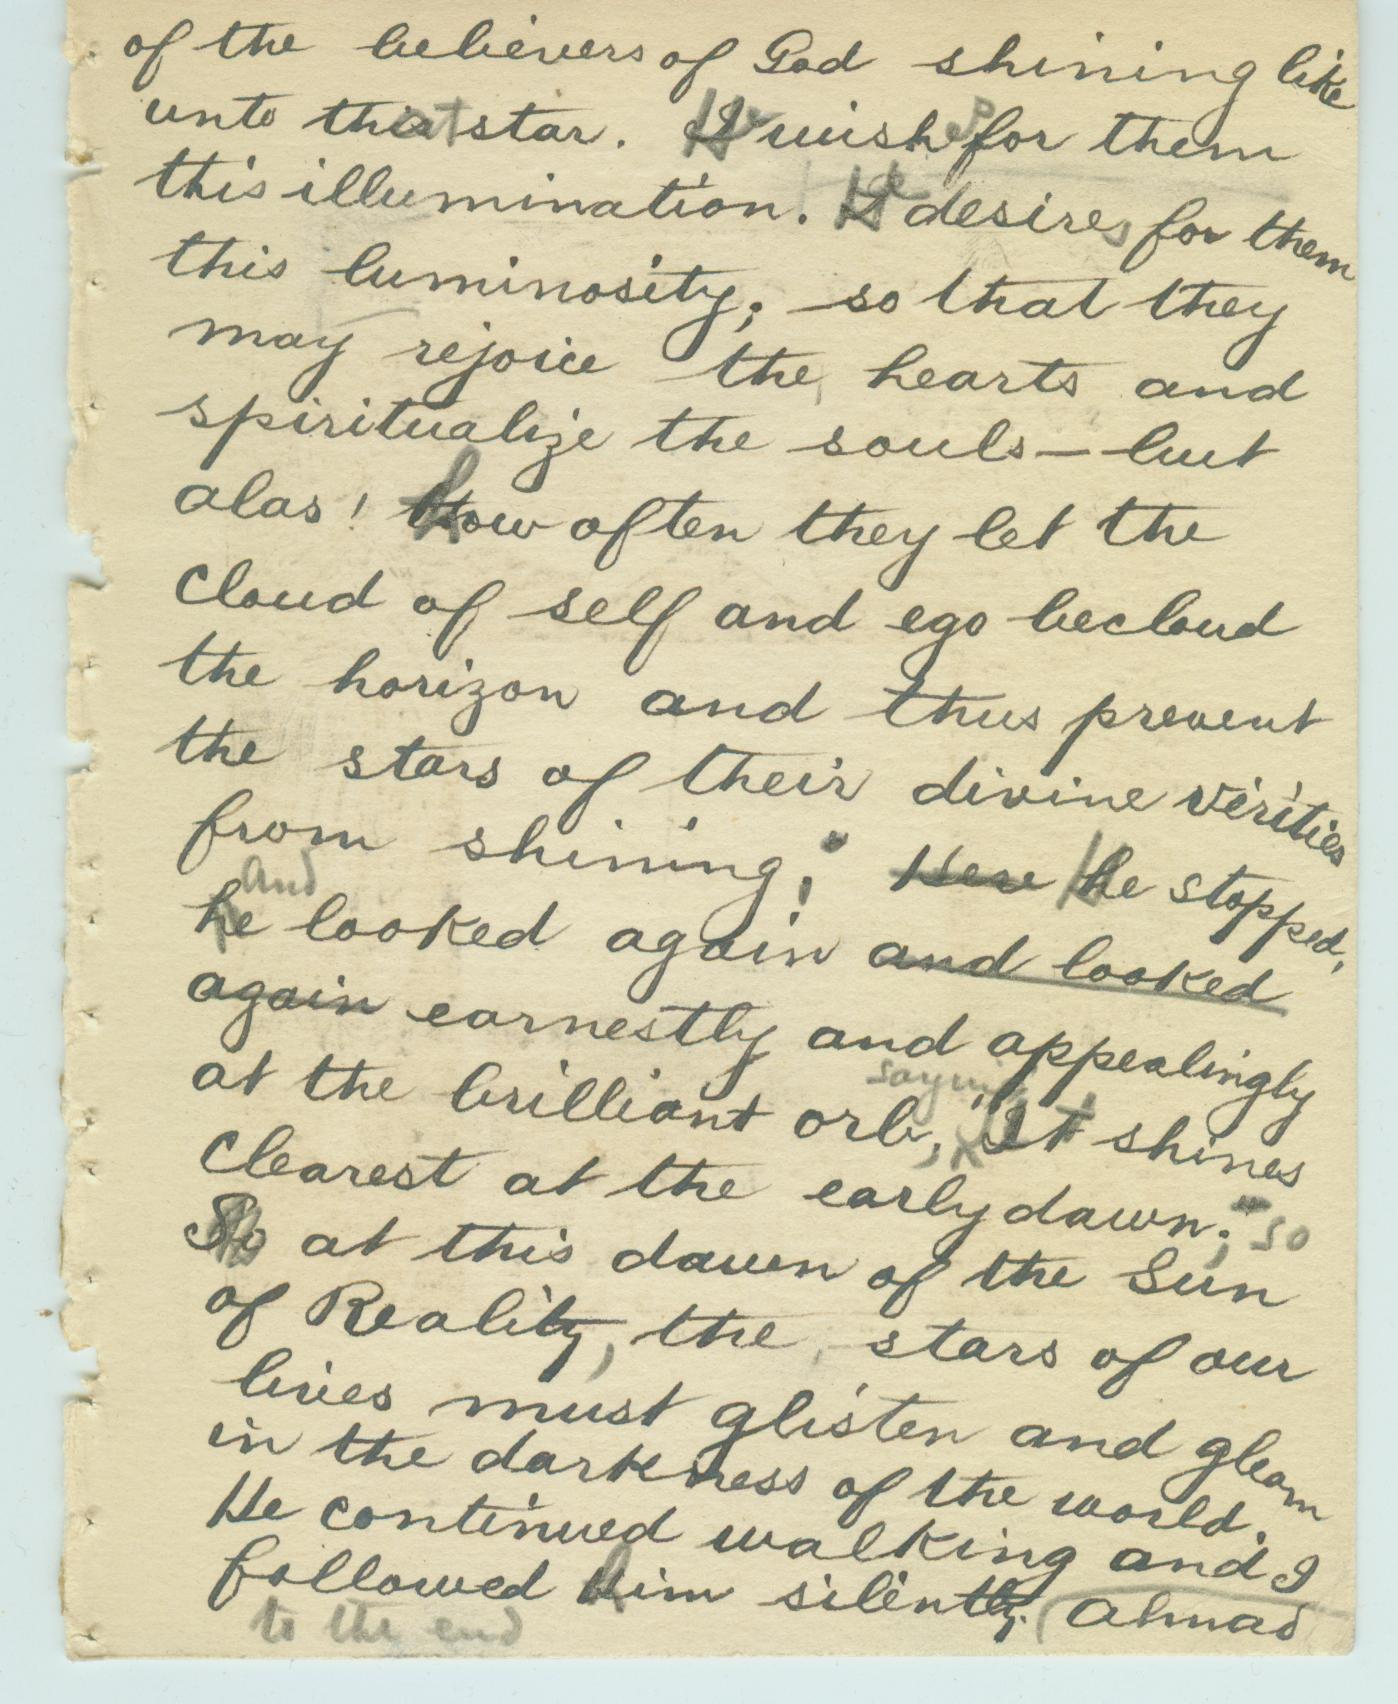 of the believers of God shining like
unto that star. He wishes for them
this illumination. He desires for them
this luminosity; so that they
may rejoice the hearts and
spiritualize the souls — but
alas! how often they let the
cloud of self and ego becloud
the horizon and thus prevent
the stars of their divine verities
from shining!" Here He stopped,
and
he looked again and looked
again earnestly and appealingly
saying
at the brilliant orb, "It shines
clearest at the early dawn;" so
So at this dawn of the Sun
of Reality, the stars of our
lives must glisten and gleam
in the darkness of the world.
He continued walking and I
followed him silently. (Ahmad
to the end